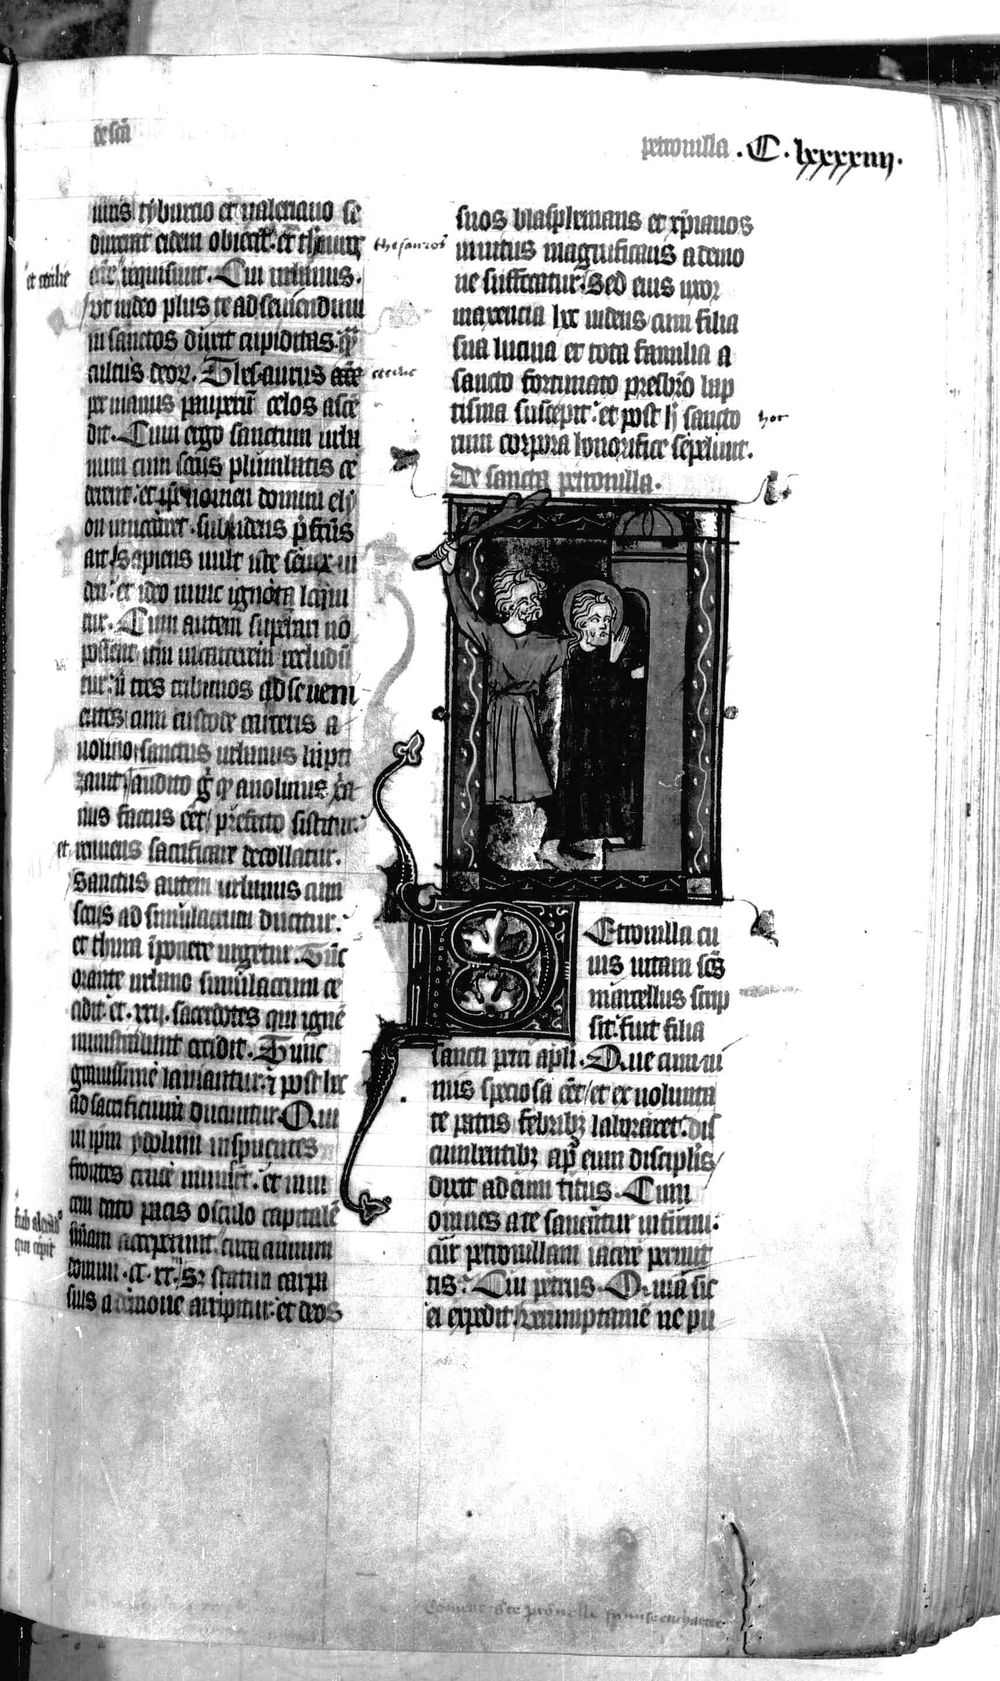 de scā
petronilla . C . lxxxxiiij.
nius tyburtio et ualeriano se
ducent eidem obiecit. et thesauros
thesauros
ecc̄e inquisiuit. Cui urbanus.
et cecilie
vt uideo plus te ad seuiendum
in sanctos ducit cupiditas. qͣ
cultus deoꝝ. Thesaurus
cecilie
per manus pauperū celos ascē
dit. Cum ergo sanctum urba
num cum sociis plumbatis ce
derent. et nomen domini ely
on inuocaret. subridens p̄fectus
ait. Sapiens uult iste senex ui
deri. et ideo nunc ignota loqui
tur. Cum autem supari nō
possent iterum in carcerem recludū
tur. ubi tres tribunos ad se ueni
entes cum custode carceris a
nolino sanctus urbanus bapti
zauit. audito gͦ qͥ anolinus xͬia
nus factus eēt p̄fecto sistitur.
et renuens sacrificare decollatur.
Sanctus autem urbanus cum
sociis ad simulacrum ducitur.
et thura īponere urgetur. Tūc
orante urbano simulacrum ce
cidit et .xxij. sacerdotes qui ignē
ministrabant occidit. Tunc
grauissime laniantur. et post hec
ad sacrificium ducuntur. Qui
in ip̄m ydolum inspuentes
frontes cruce muniūt. et inui
cem dato pacis osculo capitalē
sub alexādͦ
qui cepit
sn̄iam acceperunt. circa annum
domini .cc.xx. Sȝ statim carpa
sius a demone arripitur. et deos
suos blasphemans et xp̄ianos
inuitus magnificans a demo
ne suffocatur. Sed eius uxor
marencia hec uidens cum filia
sua lucina et tota familia a
sancto fortunato presbr̄o bap
tisma suscepit. et post h̄ sancto
hoc
rum corpora honorifice sepeliuit.
De sancta petronilla.
PEtronilla cu
ius uitam scūs
marcellus scrip
sit. fuit filia
sancti petri apl̄i. Que cum ni
mis speciosa eēt et ex uolunta
te patris febribȝ laboraret. dis
cumbentibȝ apud eum discipulis
dixit ad eum titus. Cum
omnes a te sanentur infirmi.
cur petronillam iacere permit
tis? Cui petrus. Quia sic
ei expedit. Verumptamē ne pu